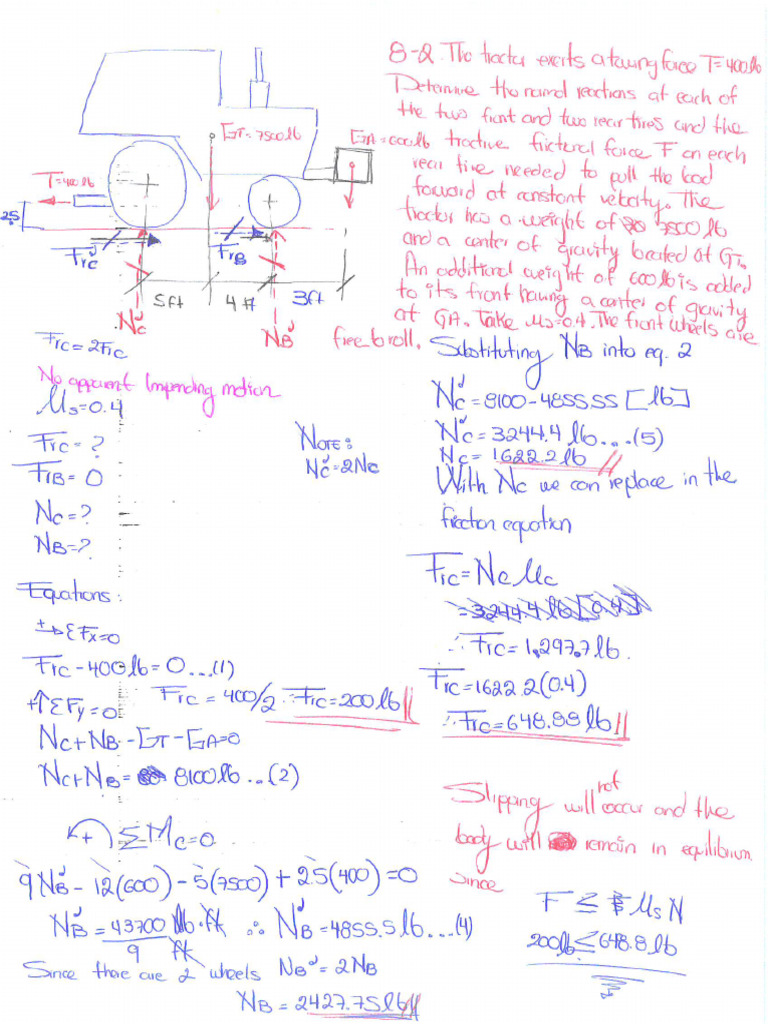 8-2. The tractor exerts a towing force T=400lb
Determine the normal reactions at each of
the two front and two rear tires and the
tractive frictional force F on each
rear tire needed to pull the load
forward at constant velocity. The
tractor has a weight of 7500 lb
and a center of gravity located at GT.
An additional weight of 600 lb is added
to its front having a center of gravity
at GA. Take Ms=0.4. The front wheels are
free to roll.
GT=7500lb
GA=600lb
T=400lb
2.5
Frc'
FrB
5ft
4ft
3ft
Nc'
NB'
Frc'=2Frc
No apparent Impending motion
Ms=0.4
Frc=?
FrB=0
Nc=?
NB=?
NOTE:
Nc'=2Nc
Equations:
+→ΣFx=0
Frc-400lb=0...(1)
Frc=400/2 ∴ Frc=200lb
+↑ΣFy=0
Nc+NB-GT-GA=0
Nc+NB=8100lb...(2)
+ ΣMc=0
9NB'-12(600)-5(7500)+2.5(400)=0
NB'=43700 lb·ft/9 ft ∴ NB'=4855.5lb...(4)
Since there are 2 wheels NB'=2NB
NB=2427.75lb
Substituting NB into eq. 2
Nc'=8100-4855.55 [lb]
Nc'=3244.4 lb...(5)
Nc=1622.2lb
With Nc we can replace in the
friction equation
Frc=NcMc
=3244.4 lb[0.4]
∴ Frc=1,297.7lb.
Frc=1622.2(0.4)
∴ Frc=648.88lb
Slipping will not occur and the
body will remain in equilibrium
since
F ≤ MsN
200lb ≤ 648.8lb